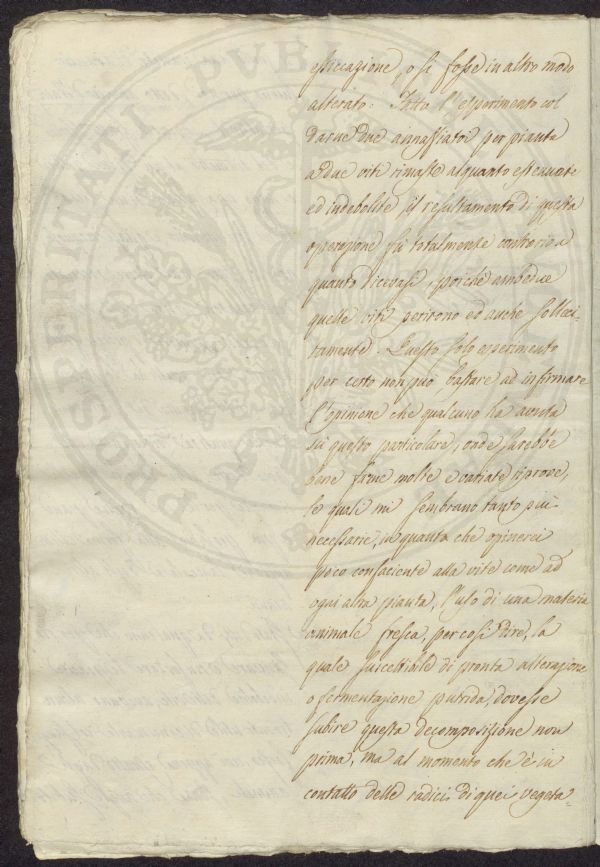 essiccazione, o si fosse in altro modo
alterato: Fatto l'esperimento col
darne due annaffiatoi per pianta
a due viti rimaste alquanto essiccate
ed indebolite il resultamento di questa
operazione fù totalmente contrario a
quanto dicevasi, poichè ambedue
quelle viti perirono ed anche solleci-
tamente. Questo solo esperimento
per certo non può bastare ad infirmare
l'opinione che qualcuno ha avuta
sù questo particolare, onde sarebbe
bene farne molte e variate riprove,
le quali mi sembrano tanto più
necessarie, in quanto che opinerei
poco confaciente alla vite come ad
ogni altra pianta, l'uso di una materia
animale fresca, per così dire, la
quale suscettibile di pronta alterazione
o fermentazione putrida, dovesse
subire questa decomposizione non
prima, ma al momento che è in
contatto delle radici di quei vegeta-
PROSPERITATI PVBL